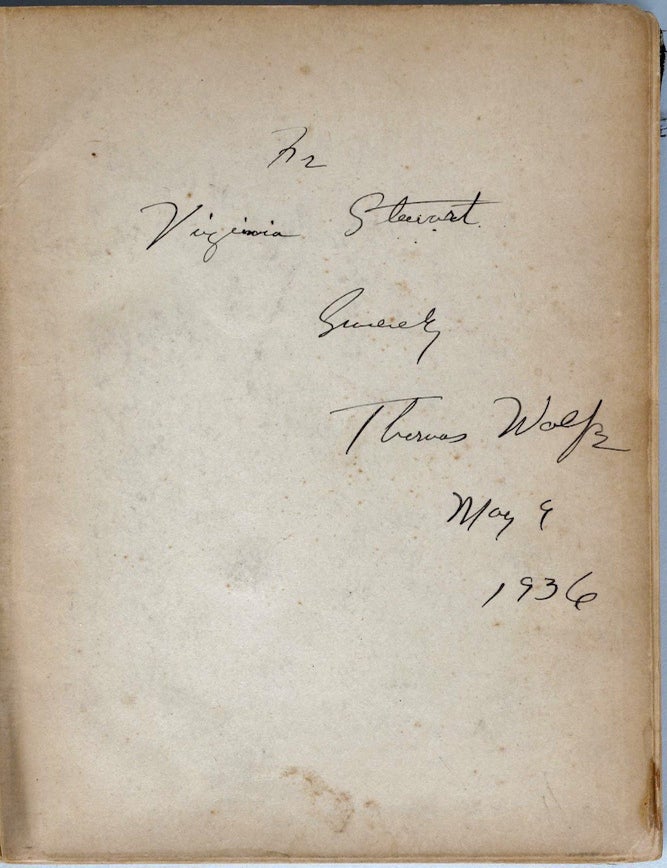 For
Virginia Stewart
Sincerely
Thomas Wolfe
May 9
1936